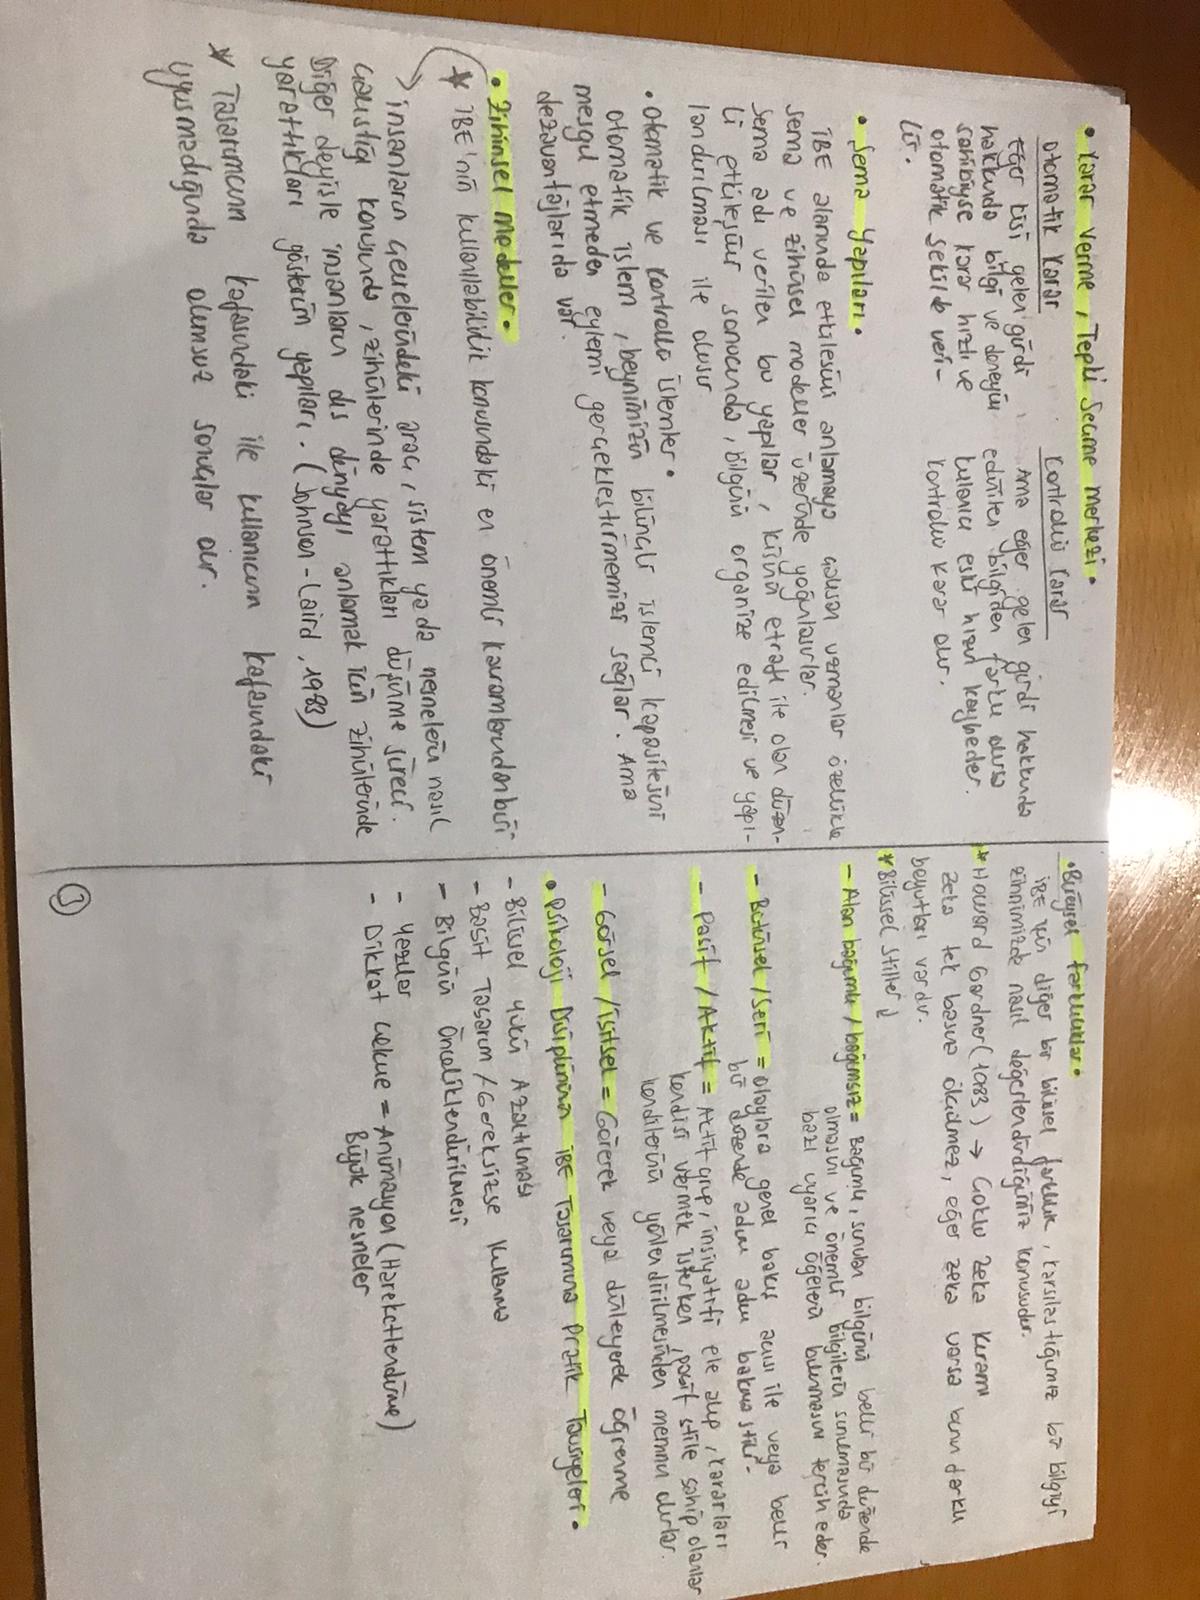 • Karar Verme, Tepki Seçme Merkezi •
Otomatik Karar
Eğer kişi gelen girdi
hakkında bilgi ve deneyim
sahibiyse karar hızlı ve
otomatik şekilde veri-
lir.
Kontrollü Karar
Ama eğer gelen girdi hakkında
edinilen bilgiden farklı olursa
kullanıcı eski hızını kaybeder.
Kontrollü karar olur.
• Şema Yapıları •
İBE alanında etkileşimi anlamaya çalışan uzmanlar özellikle
şema ve zihinsel modeller üzerinde yoğunlaşırlar.
Şema adı verilen bu yapılar, kişinin etrafı ile olan düzen-
li etkileşim sonucunda, bilginin organize edilmesi ve yapı-
landırılması ile oluşur
• Otomatik ve Kontrollü İşlemler •
Otomatik işlem, beynimizin bilinçli işlemci kapasitesini
meşgul etmeden eylemi gerçekleştirmemizi sağlar. Ama
dezavantajlarıda var.
• Zihinsel Modeller •
★ İBE'nin kullanılabilirlik konusundaki en önemli kavramlarından biri
→ insanların çevrelerindeki araç, sistem ya da nesnelerin nasıl
çalıştığı konusunda, zihinlerinde yarattıkları düşünme süreci.
Diğer deyişle insanların dış dünyayı anlamak için zihinlerinde
yarattıkları gösterim yapıları. (Johnson-Laird, 1983)
★ Tasarımcının kafasındaki ile kullanıcının kafasındaki
uyuşmadığında olumsuz sonuçlar olur.
• Bireysel Farklılıklar •
İBE için diğer bir bilişsel farklılık, karşılaştığımız bir bilgiyi
zihnimizde nasıl değerlendirdiğimiz konusudur.
★ Howard Gardner (1983) → Çoklu Zeka Kuramı
Zeka tek başına ölçülmez, eğer zeka varsa bunun farklı
boyutları vardır.
★ Bilişsel Stiller ↓
- Alan bağımlı / bağımsız = Bağımlı, sunulan bilginin belli bir düzende
olmasını ve önemli bilgilerin sunulmasında
bazı uyarıcı öğelerin bulunmasını tercih eder.
- Bütünsel / Seri = Olaylara genel bakış açısı ile veya belli
bir düzende adım adım bakma stili.
- Pasif / Aktif = Aktif grup, insiyatifi ele alıp, kararları
kendisi vermek isterken, pasif stile sahip olanlar
kendilerinin yönlendirilmesinden memnun olurlar.
- Görsel / İşitsel = Görerek veya dinleyerek öğrenme
• Psikoloji Disiplininin İBE Tasarımına Pratik Tavsiyeleri •
- Bilişsel Yükün Azaltılması
- Basit Tasarım / Gereksizse Kullanma
- Bilginin Önceliklendirilmesi
- Yazılar
- Dikkat Çekme = Animasyon (Hareketlendirme)
Büyük nesneler
3